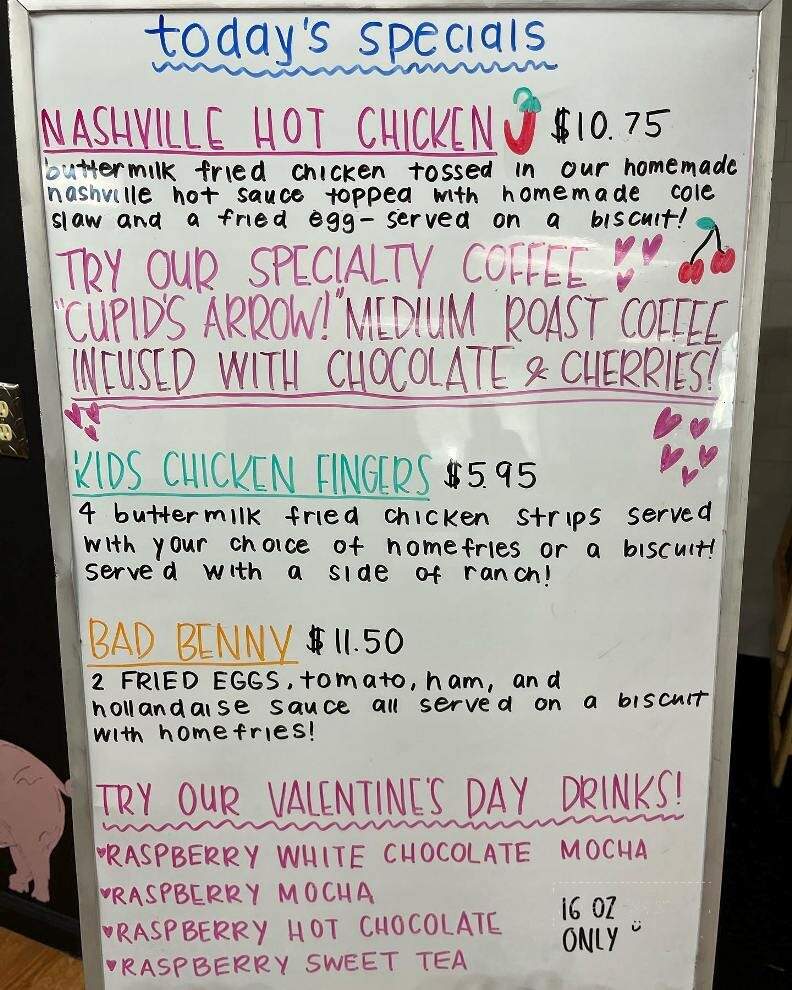 today's specials
NASHVILLE HOT CHICKEN $10.75
buttermilk fried chicken tossed in our homemade
nashville hot sauce topped with homemade cole
slaw and a fried egg- served on a biscuit!
TRY OUR SPECIALTY COFFEE
"CUPID'S ARROW!" MEDIUM ROAST COFFEE
INFUSED WITH CHOCOLATE & CHERRIES!
KIDS CHICKEN FINGERS $5.95
4 buttermilk fried chicken strips served
with your choice of homefries or a biscuit!
served with a side of ranch!
BAD BENNY $11.50
2 FRIED EGGS, tomato, ham, and
hollandaise sauce all served on a biscuit
with homefries!
TRY OUR VALENTINE'S DAY DRINKS!
♥RASPBERRY WHITE CHOCOLATE MOCHA
♥RASPBERRY MOCHA
♥RASPBERRY HOT CHOCOLATE
♥RASPBERRY SWEET TEA
16 OZ
ONLY